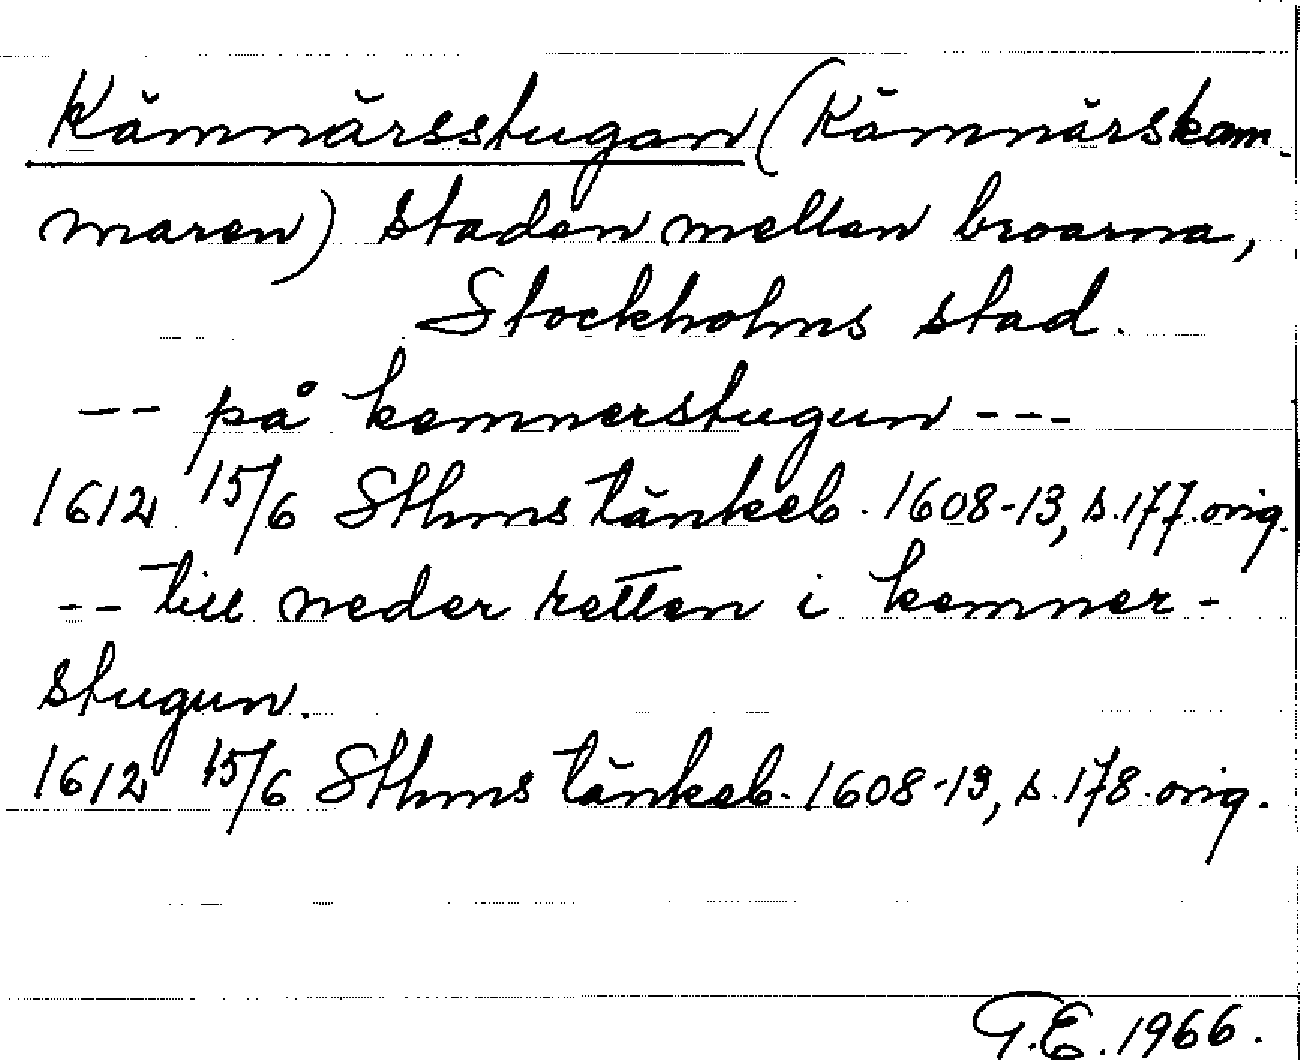 Kämnärsstugan (Kämnärskam-
maren) Staden mellan broarna,
Stockholms stad.
-- på kemnerstugun ---
1612 15/6 Sthms tänkeb. 1608-13, s. 177 orig.
-- till neder retten i kemner-
stugun.
1612 15/6 Sthms tänkeb. 1608-13, s. 178 orig.
G.E. 1966.